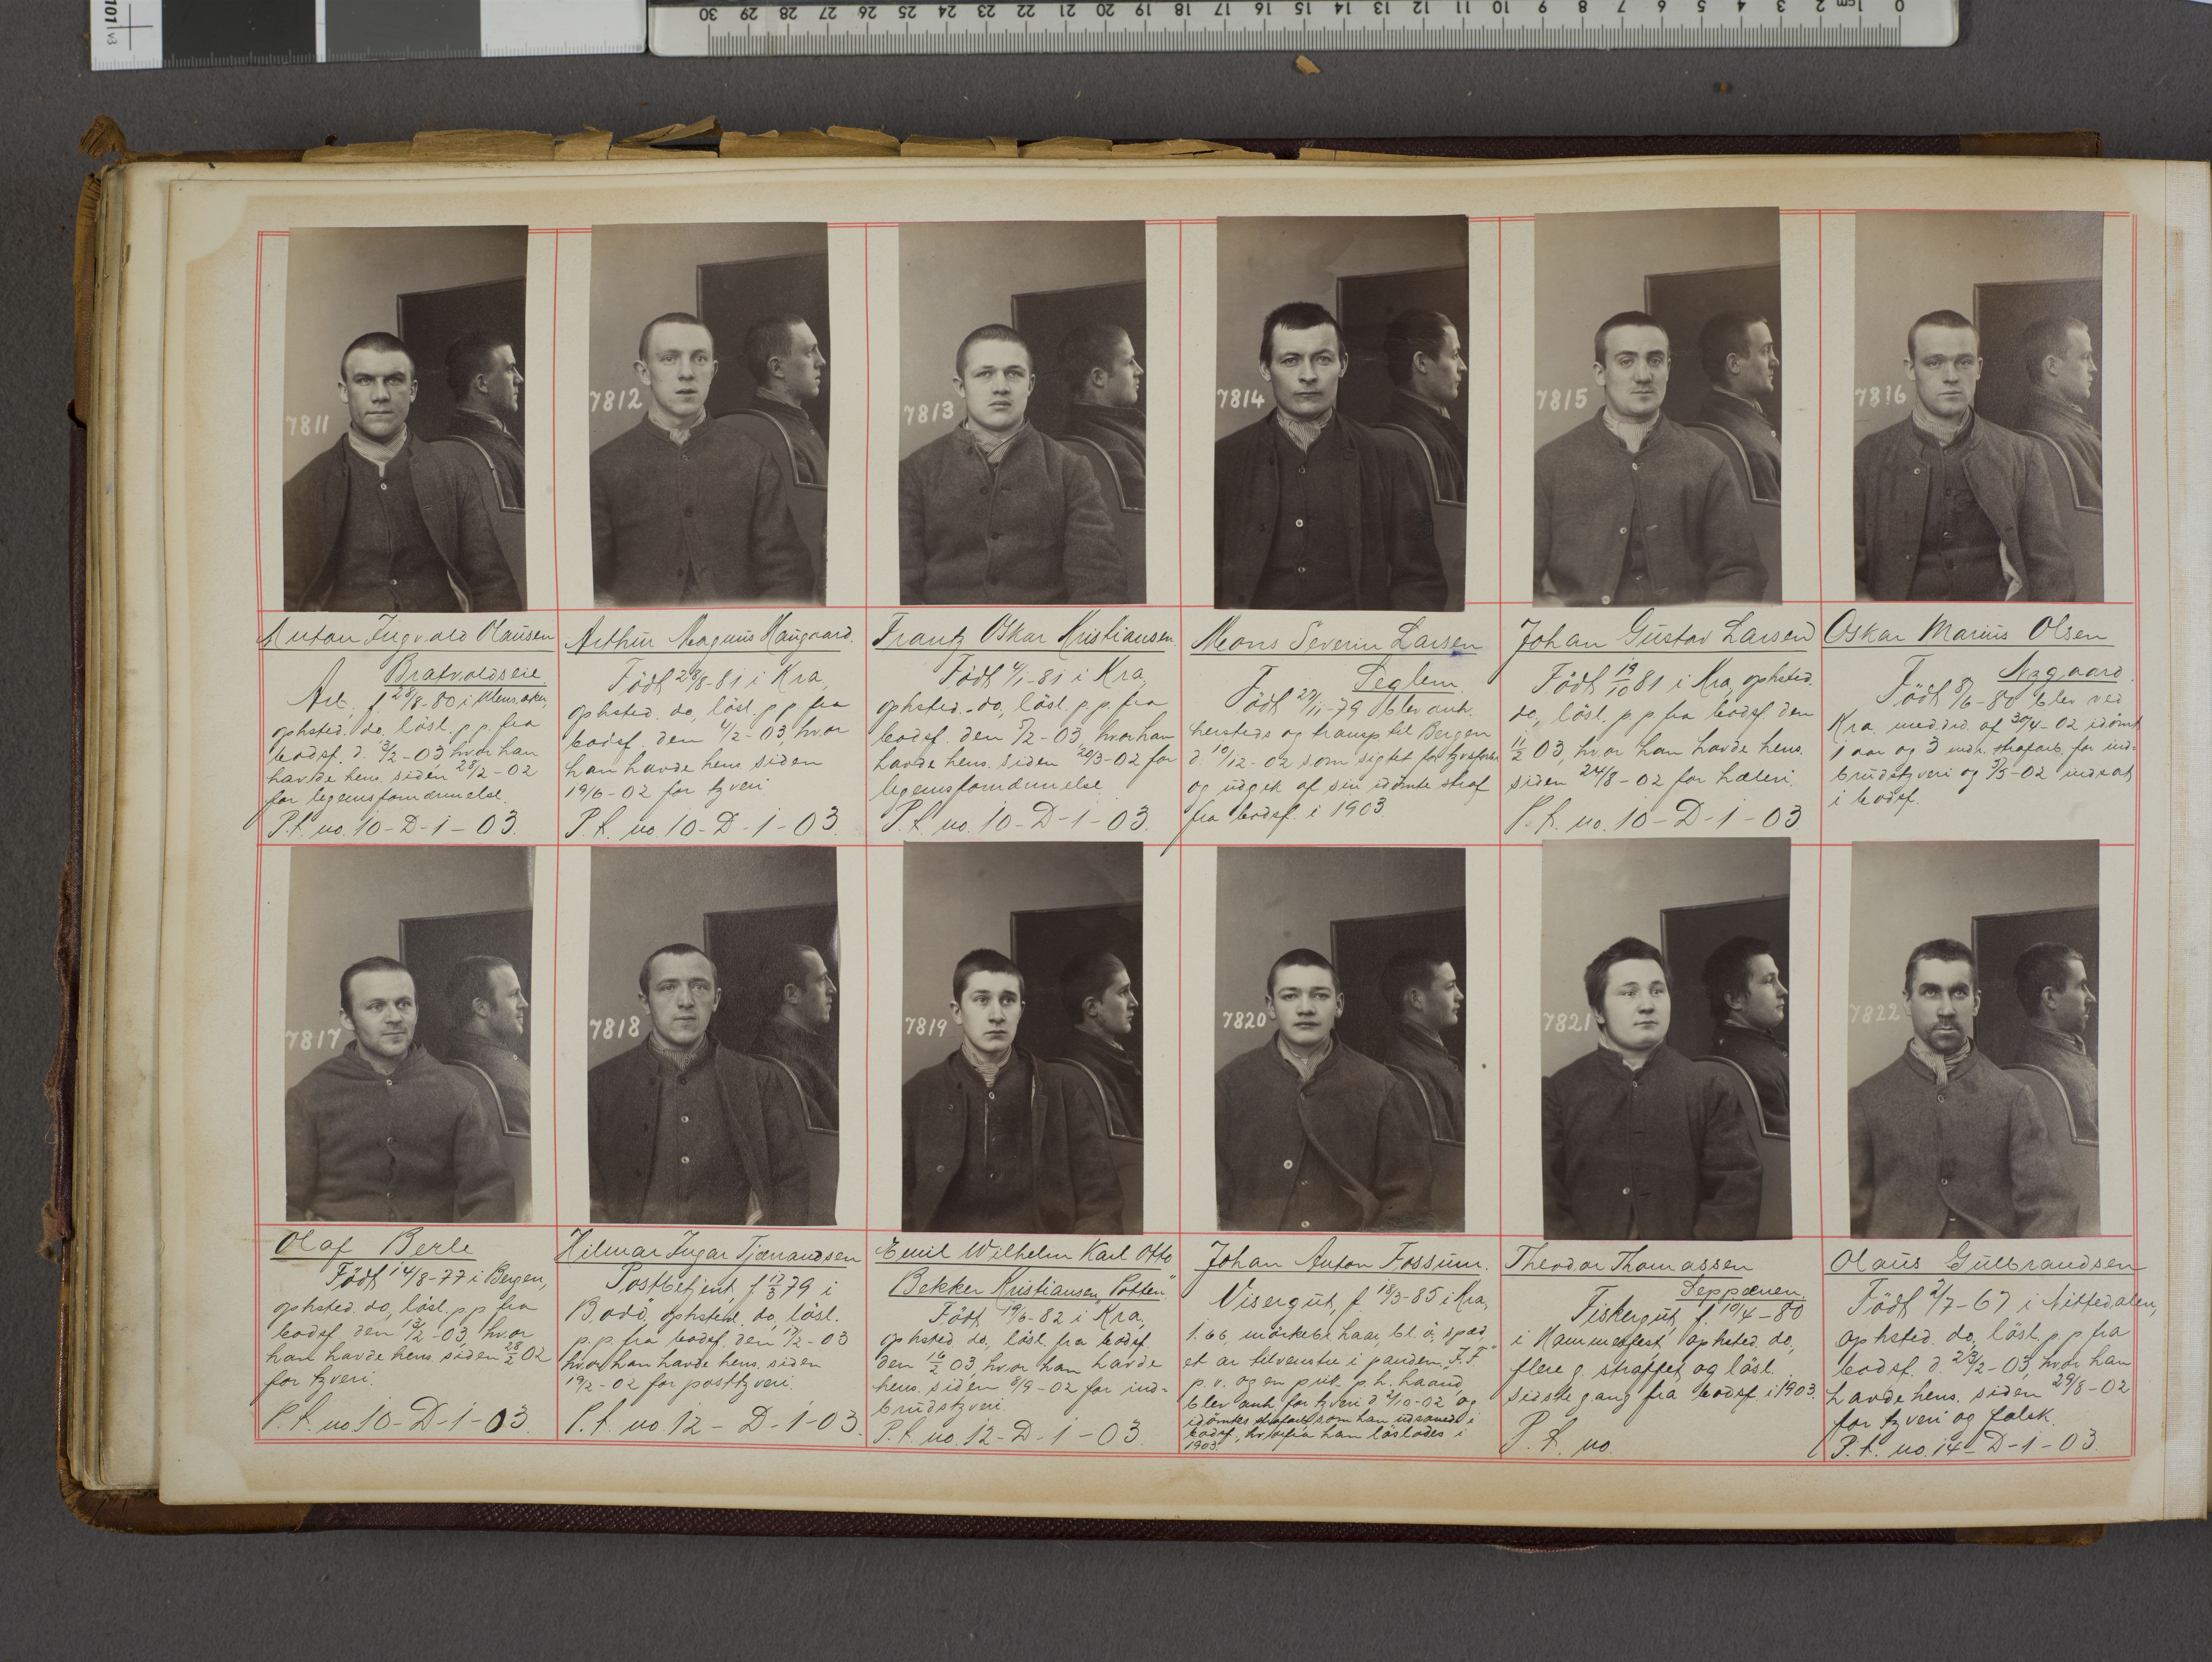 101 v3
0 1cm 2 3 4 5 6 7 8 9 10 11 12 13 14 15 16 17 18 19 20 21 22 23 24 25 26 27 28 29 30
7811
7812
7813
7814
7815
7816
Anton Ingvald Olausen
Bratvoldseie
Arb. f 28/8-80 i
ophsted. do, lösl. p.p. fra
bodsf. d. 13/2-03, hvor han
havde hens. siden 28/2-02
for legemsfornærmelse.
P.f. no. 10-D-1-03.
Arthur Magnus Haugaard.
Född 28/8-81 i Kra,
ophsted. do, lösl. p.p. fra
bodsf. den 4/2-03, hvor
han havde hens. siden
19/6-02 for tyveri
P.f. no. 10-D-1-03.
Frantz Oskar Kristiansen
Född 4/1-81 i Kra,
ophsted. do, lösl. p.p. fra
bodsf. den 5/2-03, hvor han
havde hens. siden 20/3-02 for
legemsfornærmelse
P.f. no. 10-D-1-03.
Mons Severin Larsen
Seglem.
Född 27/11-79 blev anh.
hersteds og transp. til Bergen
d. 10/12-02 som sigtet for
og udgik af sin idömte straf
fra bodsf. i 1903
Johan Gustav Larsen
Född 19/10 81 i Kra, ophsted.
do, lösl. p.p. fra bodsf. den
11/2 03, hvor han havde hens.
siden 24/8-02 for hæleri.
P.f. no. 10-D-1-03
Oskar Marius Olsen
Aagaard.
Född 8/6-80 blev ved
Kra. meddr. af 30/4-02 idömt
1 aar og 3 mdr. strafarb. for ind-
brudstyveri og 5/5-02 indsat
i bodsf.
7817
7818
7819
7820
7821
7822
Olaf Berle
Född 14/8-77 i Bergen,
ophsted. do, lösl. p.p. fra
bodsf. den 13/2-03, hvor
han havde hens. siden 28/2 02
for tyveri.
P.f. no. 10-D-1-03.
Hilmar Ingar Tjærandsen
Postbetjent, f. 12/3 79 i
Bodö, ophsted. do, lösl.
p.p. fra bodsf. den 17/2-03
hvor han havde hens. siden
19/2-02 for posttyveri.
P.f. no. 12-D-1-03.
Emil Wilhelm Karl Otto
Bekker Kristiansen "Potten"
Född 19/6-82 i Kra,
ophsted. do, lösl. fra bodsf.
den 16/2 03, hvor han havde
hens. siden 8/9-02 for ind-
brudstyveri.
P.f. no. 12-D-1-03
Johan Anton Fossum.
Visergut, f. 18/3-85 i Kra,
1.66, mörkebl. haar, bl. ö, spæd,
et ar tilvenstre i panden, "J.F."
p. v. og en prik p. h. haand,
blev anh. for tyveri d. 2/10-02 og
idömtes strafarb. som han udsonede i
bodsf., hvorfra han löslodes i
1903.
Theodor Thomassen
Seppænen.
Fiskergut, f. 10/4-80
i Hammerfest, ophsted. do,
flere g. straffet og lösl.
sidste gang fra bodsf. i 1903.
P.f. no
Olaus Gulbrandsen
Född 2/7-67 i Nittedalen,
ophsted. do, lösl. p.p. fra
bodsf. d. 23/2-03, hvor han
havde hens. siden 29/8-02
for tyveri og falsk.
P.f. no. 14-D-1-03.